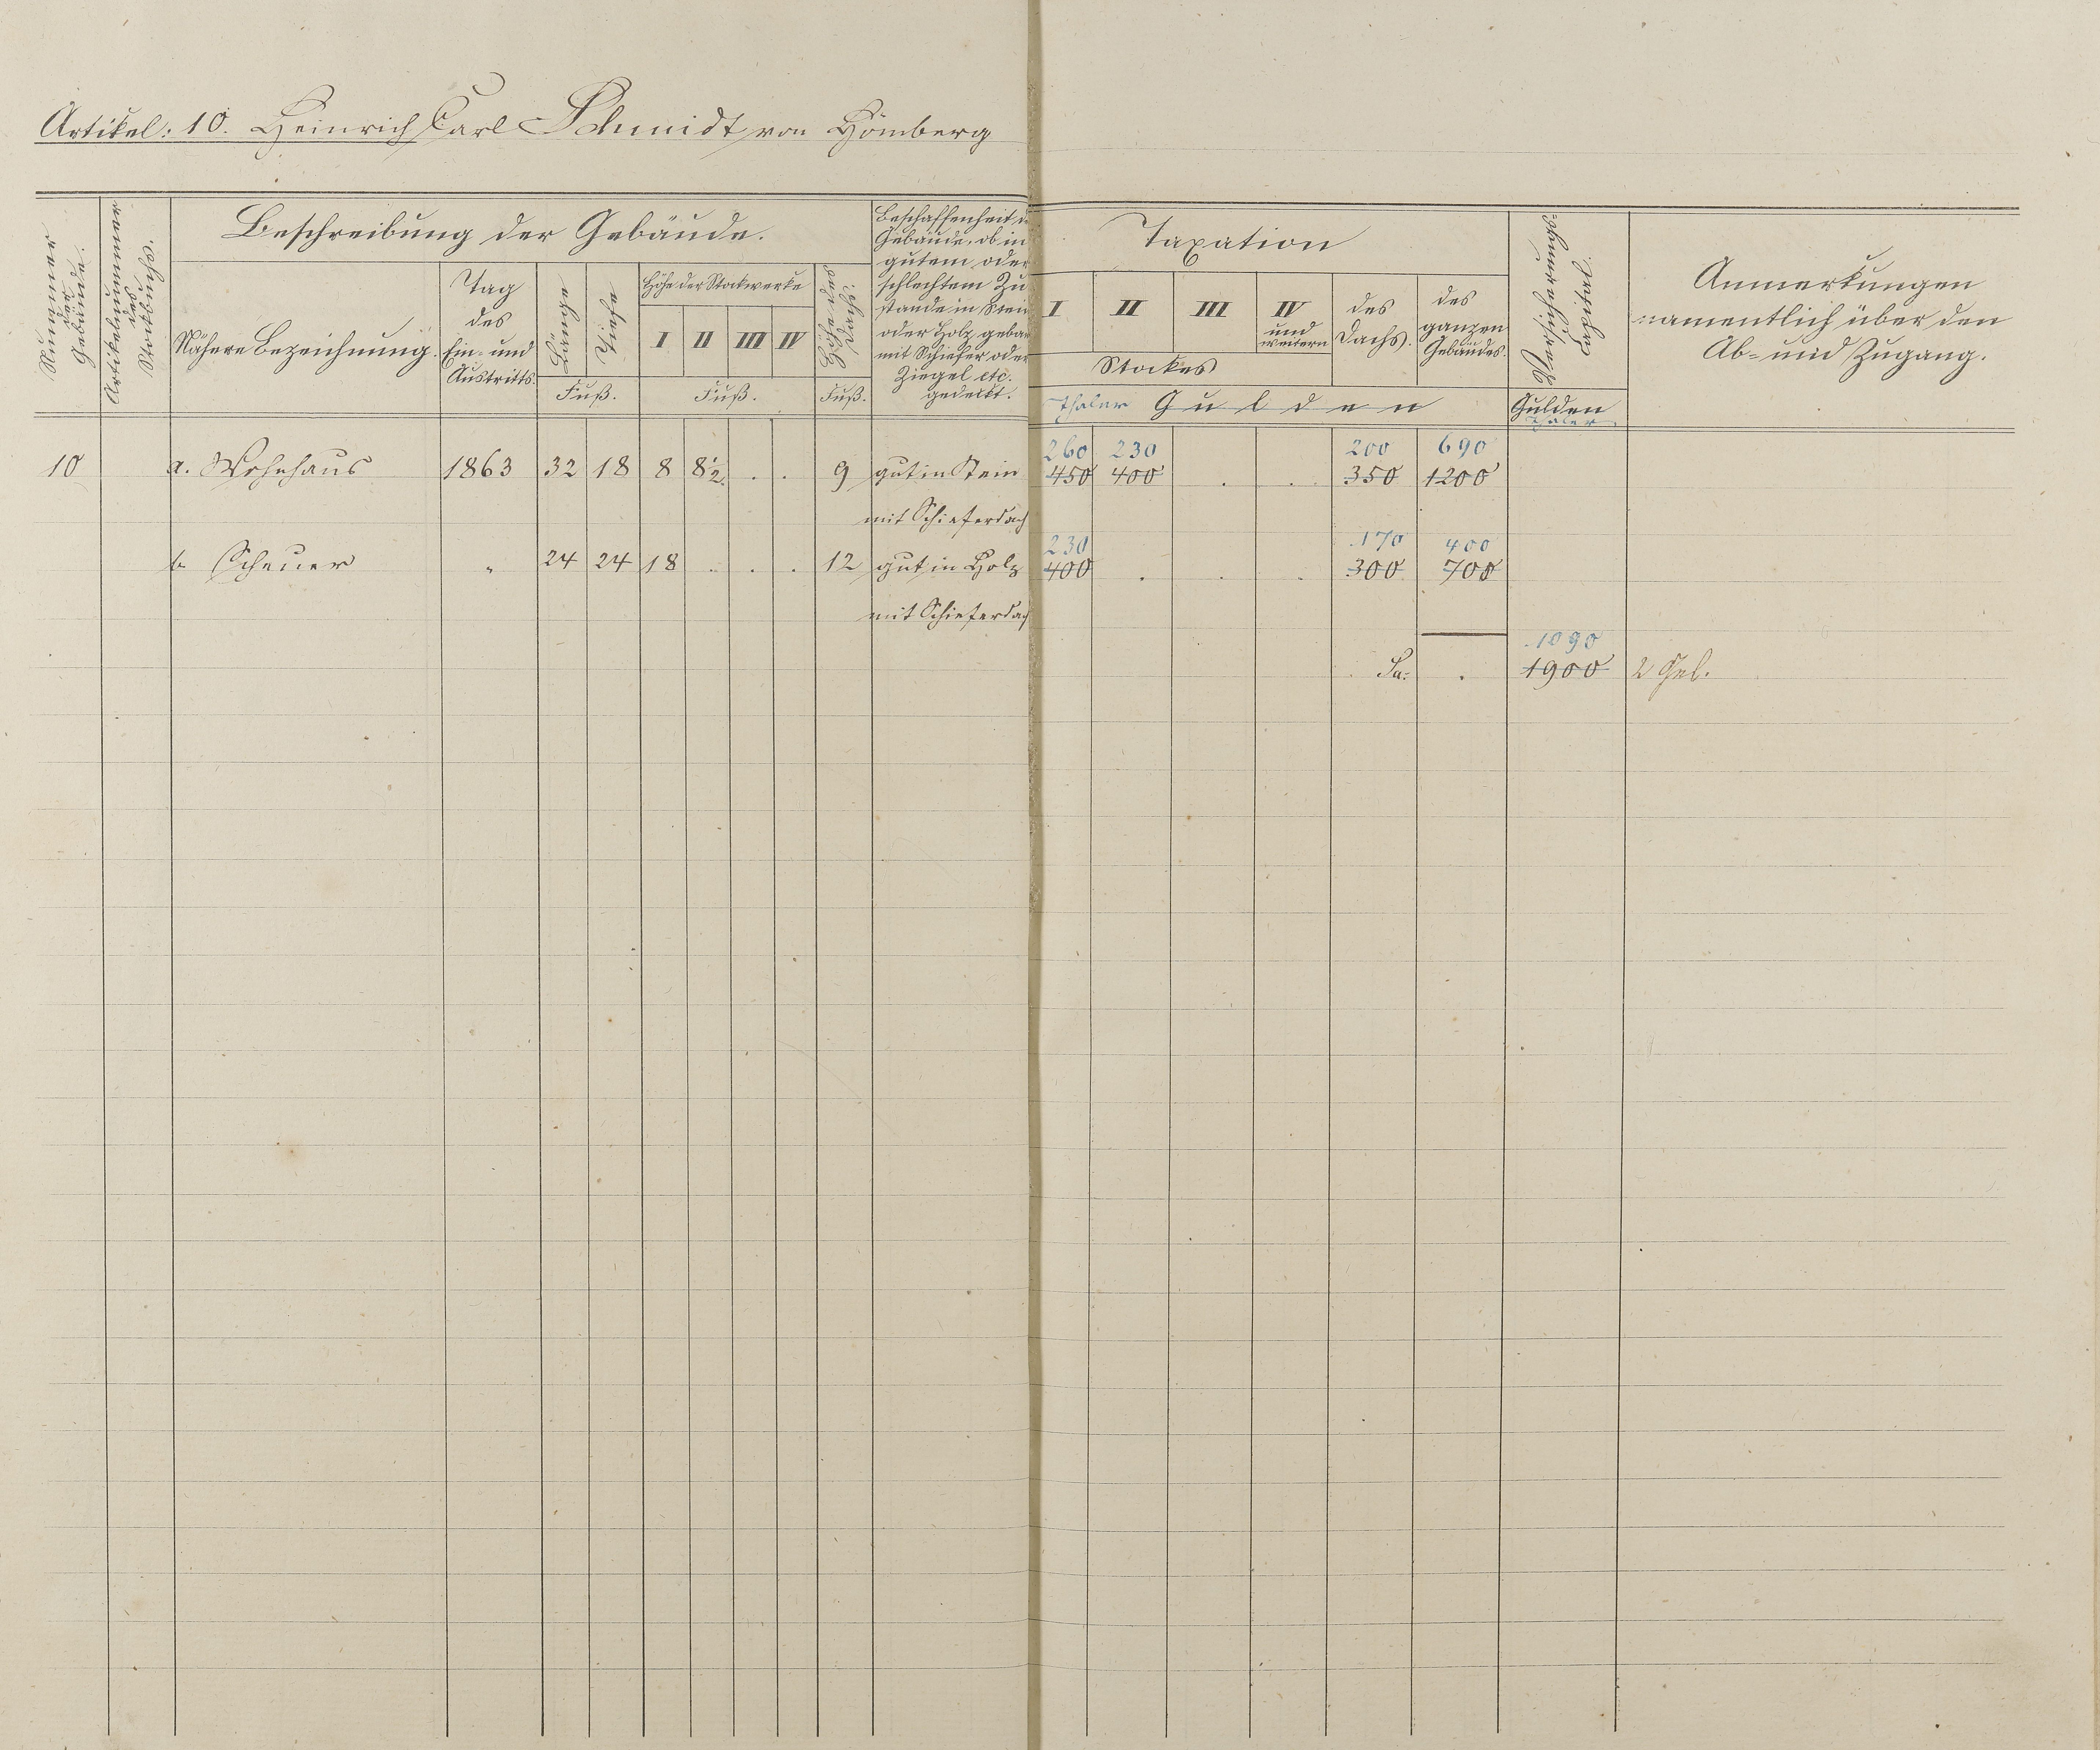 Artikel: 10. Heinrich Carl Schmidt von Hömberg
Nummer
der
Gebäude.
Artikelnummer
des
Stockbuchs.
Beschreibung der Gebäude.
Nähere Bezeichnung.
Tag
des
Ein- und
Austritts.
Länge
Tiefe
Fuß.
Höhe der Stockwerke
I II III IV
Fuß.
Höhe des
Dachs.
Fuß.
Beschaffenheit d
Gebäude, ob in
gutem oder
schlechtem Zu
stande in Stein
oder Holz gebau
mit Schiefer oder
Ziegel etc.
gedeckt.
Taxation
I II III IV
und
weitern
Stockes
des
Dachs.
des
ganzen
Gebäudes.
Thaler Gulden
Versicherungs-
Capital.
Gulden
Thaler
Anmerkungen
namentlich über den
Ab- und Zugang.
260 230 200 690
10 a. Wohnhaus 1863 32 18 8 8½ . . 9 gut in Stein 450 400 . . 350 1200
mit Schieferdach
230 170 400
b. Scheuer " 24 24 18 . . . 12 gut in Holz 400 . . . 300 700
mit Schieferdach
1090
Sa. . 1900 2 Geb.